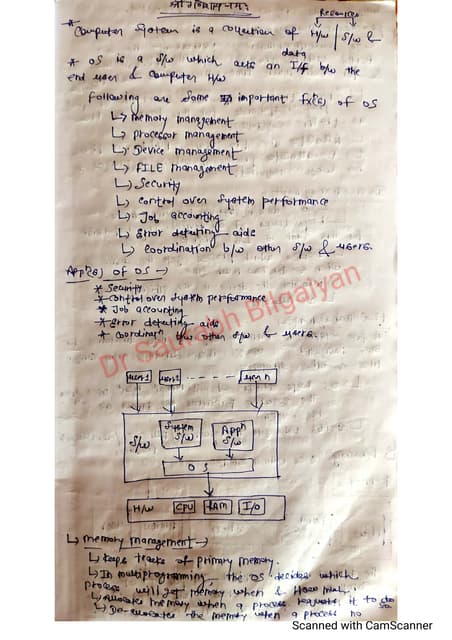 Resources
* Computer System is a collection of H/w | S/w &
data
* OS is a S/w which acts an I/f b/w the
end user & computer H/w
Following are some important fx(s) of OS
↳ Memory management
↳ processor management
↳ Device management
↳ FILE management
↳ Security
↳ control over System performance
↳ Job accounting
↳ Error detecting aids
↳ coordination b/w other S/w & users.
App(s) of OS →
* Security
* control over System performance
* Job accounting
* Error detecting aids
* coordinatn b/w other S/w & users.
Dr Saurabh Bilgaiyan
user1 user2 ------ user n
S/w System S/w Appn S/w
OS
H/w CPU RAM I/O
↳ memory management →
↳ Keeps tracks of primary memory.
↳ In multiprogramming, the OS decides which
process will get memory when & How much.
↳ Allocates memory when a process requests it to do so
↳ De-allocates the memory when a process no
Scanned with CamScanner